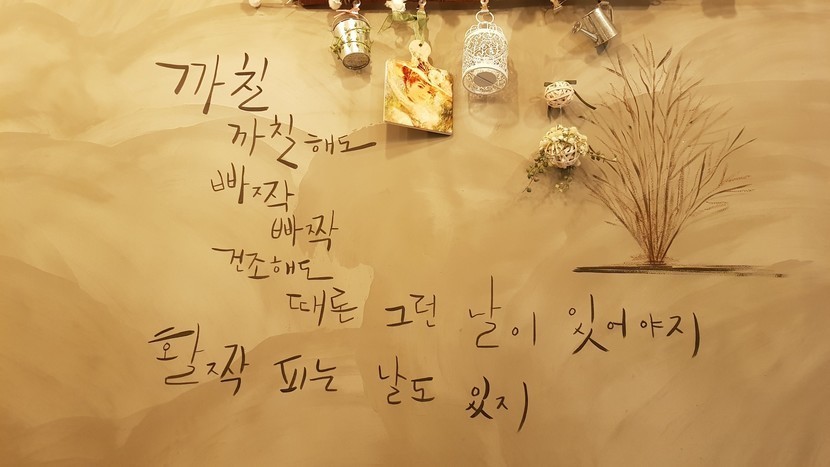 까칠
까칠해도
빠짝
빠짝
건조해도
때론 그런 날이 있어야지
활짝 피는 날도 있지